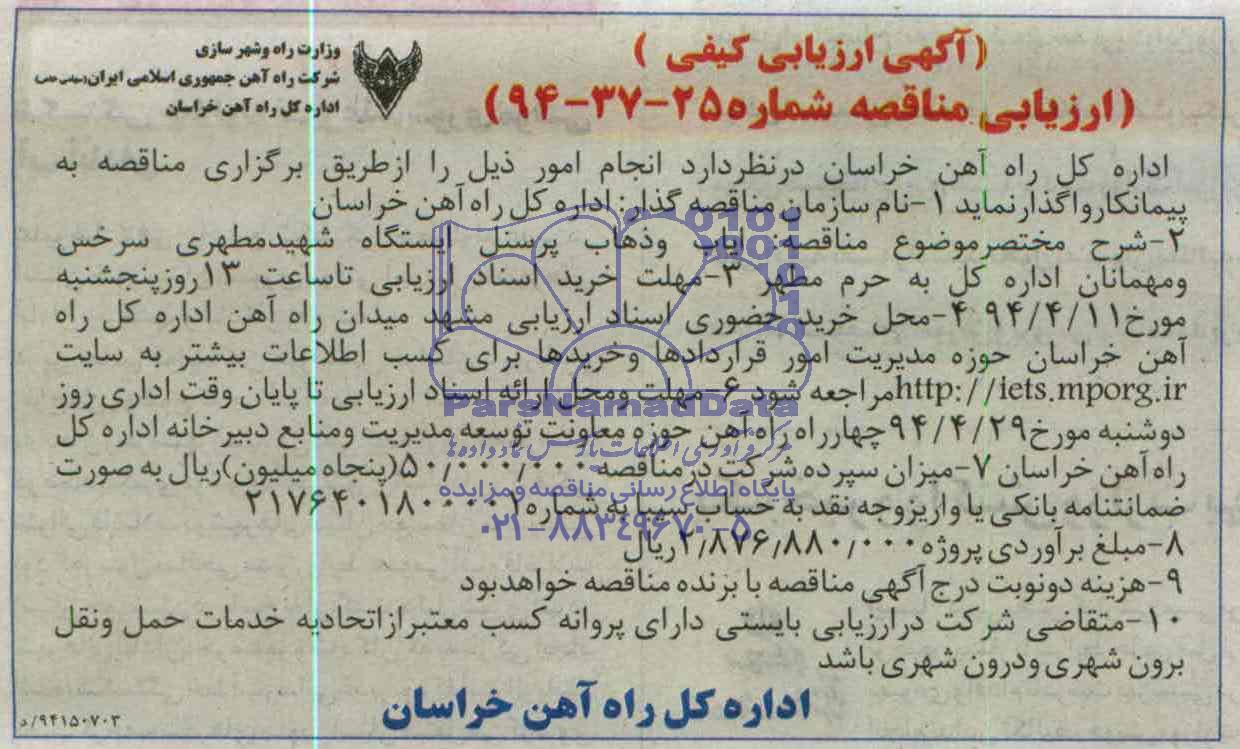 وزارت راه وشهر سازی
شرکت راه آهن جمهوری اسلامی ایران(سهامی خاص)
اداره کل راه آهن خراسان
(آگهی ارزیابی کیفی )
(ارزیابی مناقصه شماره۲۵-۳۷-۹۴)
اداره کل راه آهن خراسان درنظردارد انجام امور ذیل را ازطریق برگزاری مناقصه به
پیمانکارواگذارنماید ۱-نام سازمان مناقصه گذار: اداره کل راه آهن خراسان
۲-شرح مختصرموضوع مناقصه: ایاب وذهاب پرسنل ایستگاه شهیدمطهری سرخس
ومهمانان اداره کل به حرم مطهر ۳-مهلت خرید اسناد ارزیابی تاساعت ۱۳روزپنجشنبه
مورخ۹۴/۴/۱۱ ۴-محل خرید حضوری اسناد ارزیابی مشهد میدان راه آهن اداره کل راه
آهن خراسان حوزه مدیریت امور قراردادها وخریدها برای کسب اطلاعات بیشتر به سایت
http://iets.mporg.irمراجعه شود ۶-مهلت ومحل ارائه اسناد ارزیابی تا پایان وقت اداری روز
دوشنبه مورخ۹۴/۴/۲۹چهارراه راه آهن حوزه معاونت توسعه مدیریت ومنابع دبیرخانه اداره کل
راه آهن خراسان ۷-میزان سپرده شرکت در مناقصه ۵۰/۰۰۰/۰۰۰(پنجاه میلیون)ریال به صورت
ضمانتنامه بانکی یا واریزوجه نقد به حساب سیبا به شماره۲۱۷۶۴۰۱۸۰۰۰۰۱
۸-مبلغ برآوردی پروژه۲/۸۷۶/۸۸۰/۰۰۰ریال
۹-هزینه دونوبت درج آگهی مناقصه با برنده مناقصه خواهدبود
۱۰-متقاضی شرکت درارزیابی بایستی دارای پروانه کسب معتبرازاتحادیه خدمات حمل ونقل
برون شهری ودرون شهری باشد
اداره کل راه آهن خراسان
۹۴۱۵۰۷۰۳/د
ParsNamadData
مرکز فرآوری اطلاعات پارس نماد داده ها
پایگاه اطلاع رسانی مناقصه و مزایده
۰۲۱-۸۸۳۴۹۶۷۰-۵